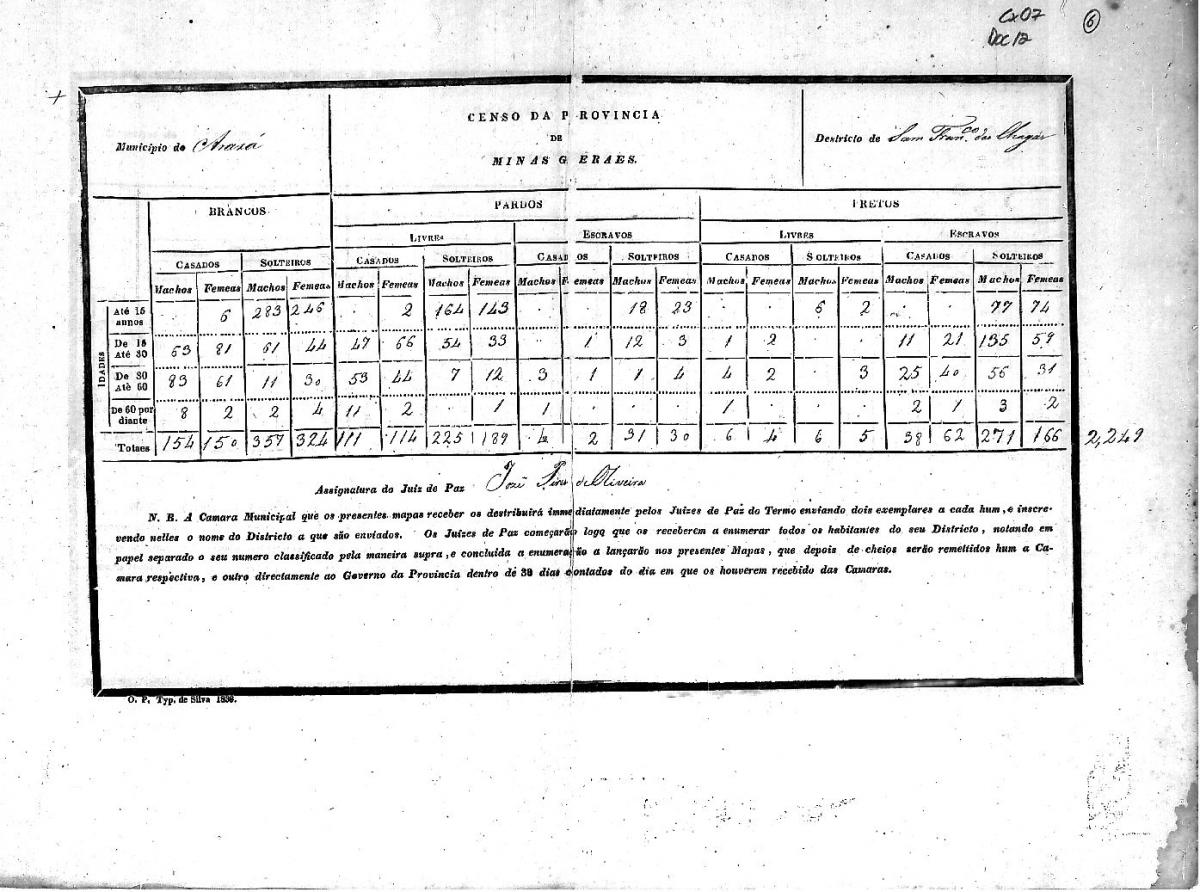 Cx07
Doc 12
6
CENSO DA PROVINCIA
DE
MINAS GERAES.
Município do Araxá
Destricto de Sam Fran.co das Chagas
BRANCOS PARDOS PRETOS
LIVRES ESCRAVOS LIVRES ESCRAVOS
CASADOS SOLTEIROS CASADOS SOLTEIROS CASADOS SOLTEIROS CASADOS SOLTEIROS CASADOS SOLTEIROS
Machos Femeas Machos Femeas Machos Femeas Machos Femeas Machos Femeas Machos Femeas Machos Femeas Machos Femeas Machos Femeas Machos Femeas
IDADES
Até 15 annos . 6 283 246 . 2 164 143 . . 18 23 . . 6 2 . . 77 74
De 15 Até 30 63 81 61 44 47 66 54 33 . 1 12 3 1 2 . . 11 21 135 59
De 30 Atè 60 83 61 11 30 53 44 7 12 3 1 1 4 4 2 . 3 25 40 56 31
De 60 por diante 8 2 2 4 11 2 . 1 1 . . . 1 . . . 2 1 3 2
Totaes 154 150 357 324 111 114 225 189 4 2 31 30 6 4 6 5 38 62 271 166 2,249
Assignatura do Juiz de Paz José Pires de Oliveira
N. B. A Camara Municipal que os presentes mapas receber os destribuirá immediatamente pelos Juizes de Paz do Termo enviando dois exemplares a cada hum, e inscre-
vendo nelles o nome do Districto a que são enviados. Os Juizes de Paz começarão logo que os receberem a enumerar todos os habitantes do seu Districto, notando em
papel separado o seu numero classificado pela maneira supra, e concluida a enumeração a lançarão nos presentes Mapas, que depois de cheios serão remettidos hum a Ca-
mara respectiva, e outro directamente ao Governo da Provincia dentro de 30 dias contados do dia em que os houverem recebido das Camaras.
O. P. Typ. de Silva 1838.